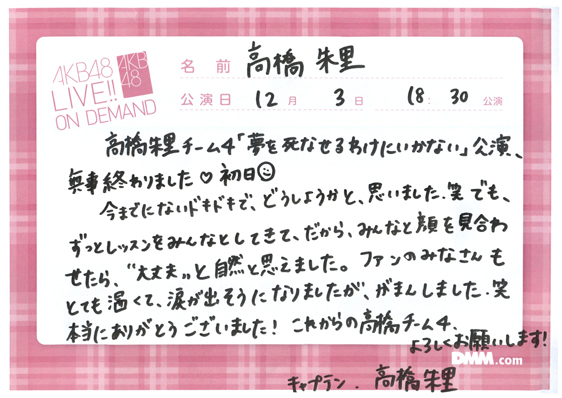 AKB48
LIVE!!
ON DEMAND
AKB
48
名前 高橋 朱里
公演日 12月 3日 18:30 公演
高橋朱里チーム4「夢を死なせるわけにいかない」公演、
無事終わりました♡ 初日☺
今までにないドキドキで、どうしようかと、思いました.笑 でも、
ずっとレッスンをみんなとしてきて、だから、みんなと顔を見合わ
せたら、“大丈夫”と自然と思えました。ファンのみなさんも
とても温くて、涙が出そうになりましたが、がまんしました.笑
本当にありがとうございました! これからの高橋チーム4、
よろしくお願いします!
DMM.com
キャプテン. 高橋朱里